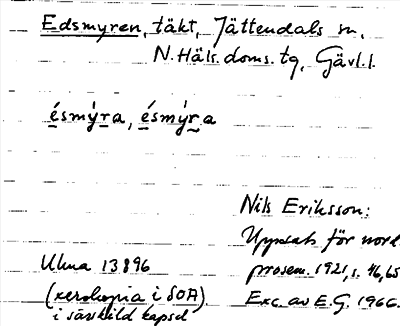 Edsmyren, täkt, Jättendals sn,
N. Häls. doms. tg, Gävl. l.
ésmýra, ésmýra
Nils Eriksson:
Uppsats för nord.
prosem. 1921, s. 46, 65
Exc. av E.G. 1966.
Uluma 13896
(xerokopia i SOA)
i särskild kapsel